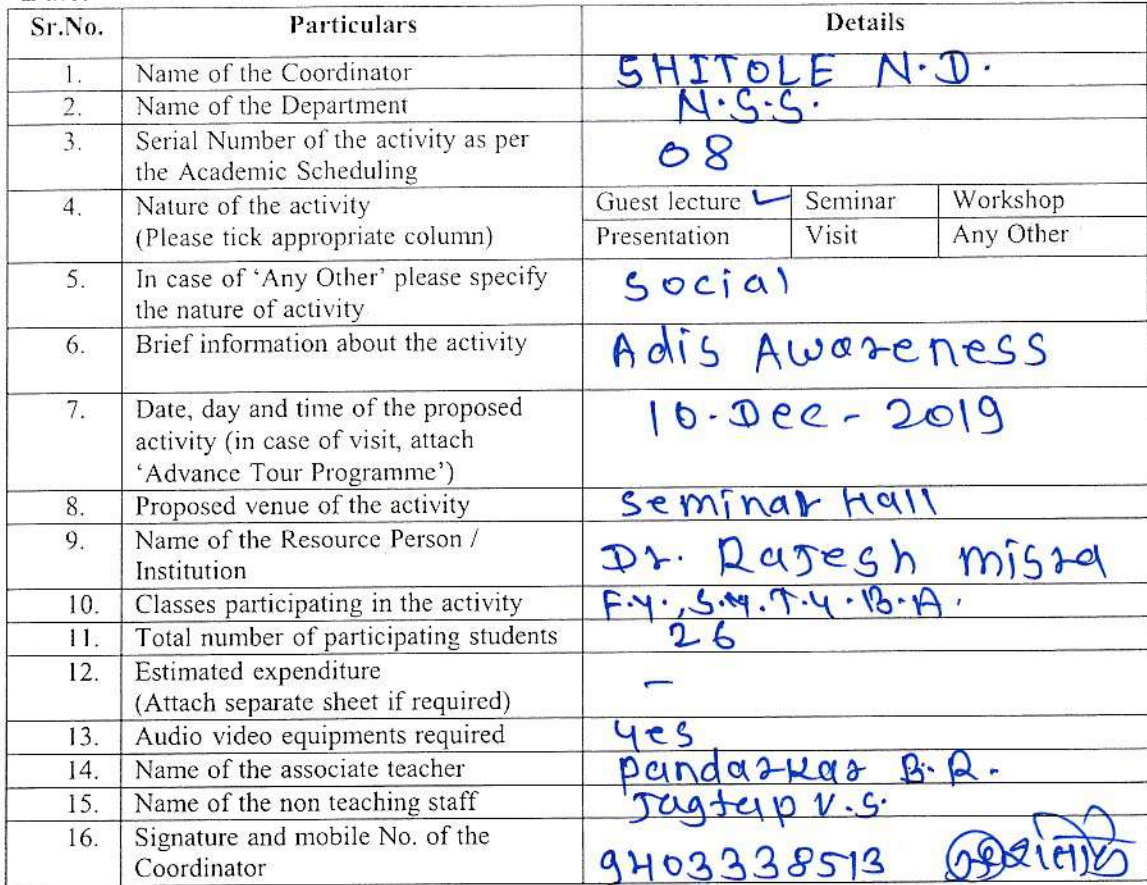 Sr.No. Particulars Details
1. Name of the Coordinator SHITOLE N.D.
2. Name of the Department N.S.S.
3. Serial Number of the activity as per
the Academic Scheduling 08
4. Nature of the activity Guest lecture ✓ Seminar Workshop
(Please tick appropriate column) Presentation Visit Any Other
5. In case of 'Any Other' please specify
the nature of activity Social
6. Brief information about the activity Adis Awareness
7. Date, day and time of the proposed 10-Dec-2019
activity (in case of visit, attach
'Advance Tour Programme')
8. Proposed venue of the activity Seminar Hall
9. Name of the Resource Person /
Institution Dr. Rajesh Misra
10. Classes participating in the activity F.Y., S.Y. T.Y. B.A.
11. Total number of participating students 26
12. Estimated expenditure –
(Attach separate sheet if required)
13. Audio video equipments required Yes
14. Name of the associate teacher Pandarkar B.R.
15. Name of the non teaching staff Jagtap V.S.
16. Signature and mobile No. of the
Coordinator 9403338513